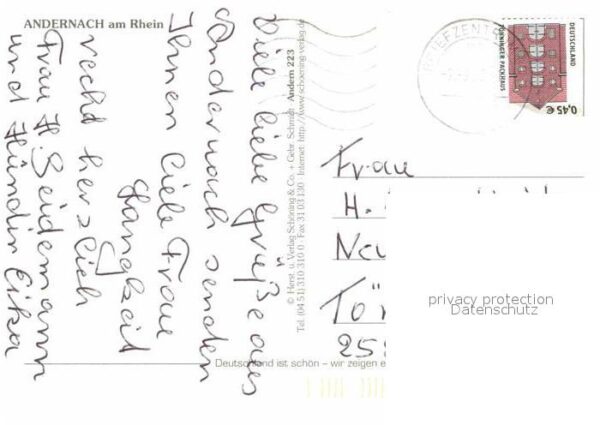 ANDERNACH am Rhein
Viele liebe Grüße aus
Andernach senden
Ihnen liebe Frau
recht herzlich
Frau H. Seidemann
und Hündin
© Herst. u. Verlag Schöning & Co. + Gebr. Schmidt · Andern 223
Tel. (04 51) 310 310 0 · Fax 31 03 130 · Internet: http://www.schoening-verlag.de
Deutschland ist schön – wir zeigen e
BRIEFZENTR
DEUTSCHLAND
TÖNNINGER PACKHAUS
0,45 €
Frau
H.
Tön
25
privacy protection
Datenschutz